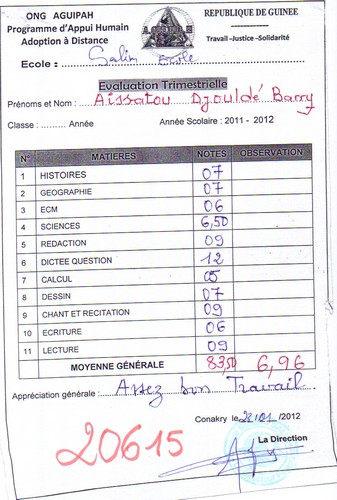 ONG AGUIPAH
REPUBLIQUE DE GUINEE
Programme d'Appui Humain
Adoption à Distance
Travail -Justice -Solidarité
Ecole : Salim Ecole
Evaluation Trimestrielle
Prénoms et Nom : Aissatou Djouldé Barry
Classe : ......... Année
Année Scolaire : 2011 - 2012
N° MATIERES NOTES OBSERVATION
1 HISTOIRES 07
2 GEOGRAPHIE 07
3 ECM 06
4 SCIENCES 6,50
5 REDACTION 09
6 DICTEE QUESTION 12
7 CALCUL 05
8 DESSIN 07
9 CHANT ET RECITATION 09
10 ECRITURE 06
11 LECTURE 09
MOYENNE GÉNÉRALE 83,50 6,96
Appréciation générale : Assez bon Travail
Conakry le 28/01 /2012
La Direction
20615